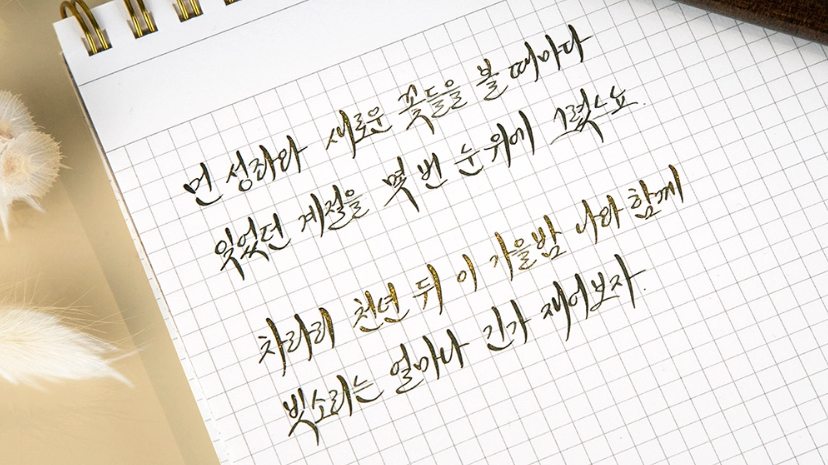 먼 성라와 새로운 꽃들을 볼 때마다
잊었던 계절을 몇 번 눈 위에 그렸느뇨.
차라리 천년 뒤 이 가을밤 나와 함께
빗소리는 얼마나 긴가 재어보자.